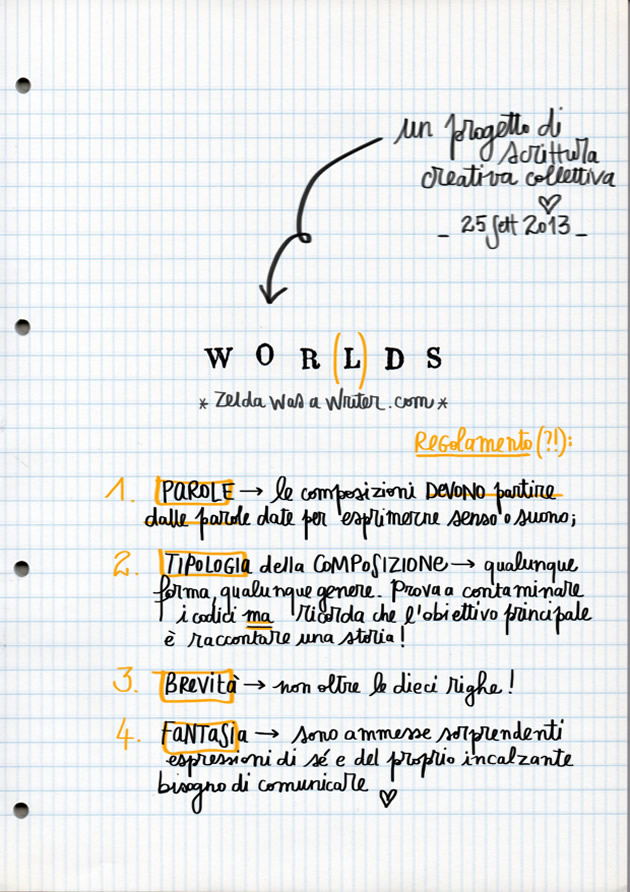 un progetto di
scrittura
creativa collettiva
♡
_ 25 Sett 2013 _
WOR(L)DS
* Zelda Was a Writer.com *
Regolamento (?!):
1. PAROLE → le composizioni DEVONO partire
dalle parole date per esprimerne senso o suono;
2. TIPOLOGIA della COMPOSIZIONE → qualunque
forma, qualunque genere. Prova a contaminare
i codici ma ricorda che l'obiettivo principale
è raccontare una storia!
3. BREVITÀ → non oltre le dieci righe!
4. FANTASIA → sono ammesse sorprendenti
espressioni di sé e del proprio incalzante
bisogno di comunicare ♡